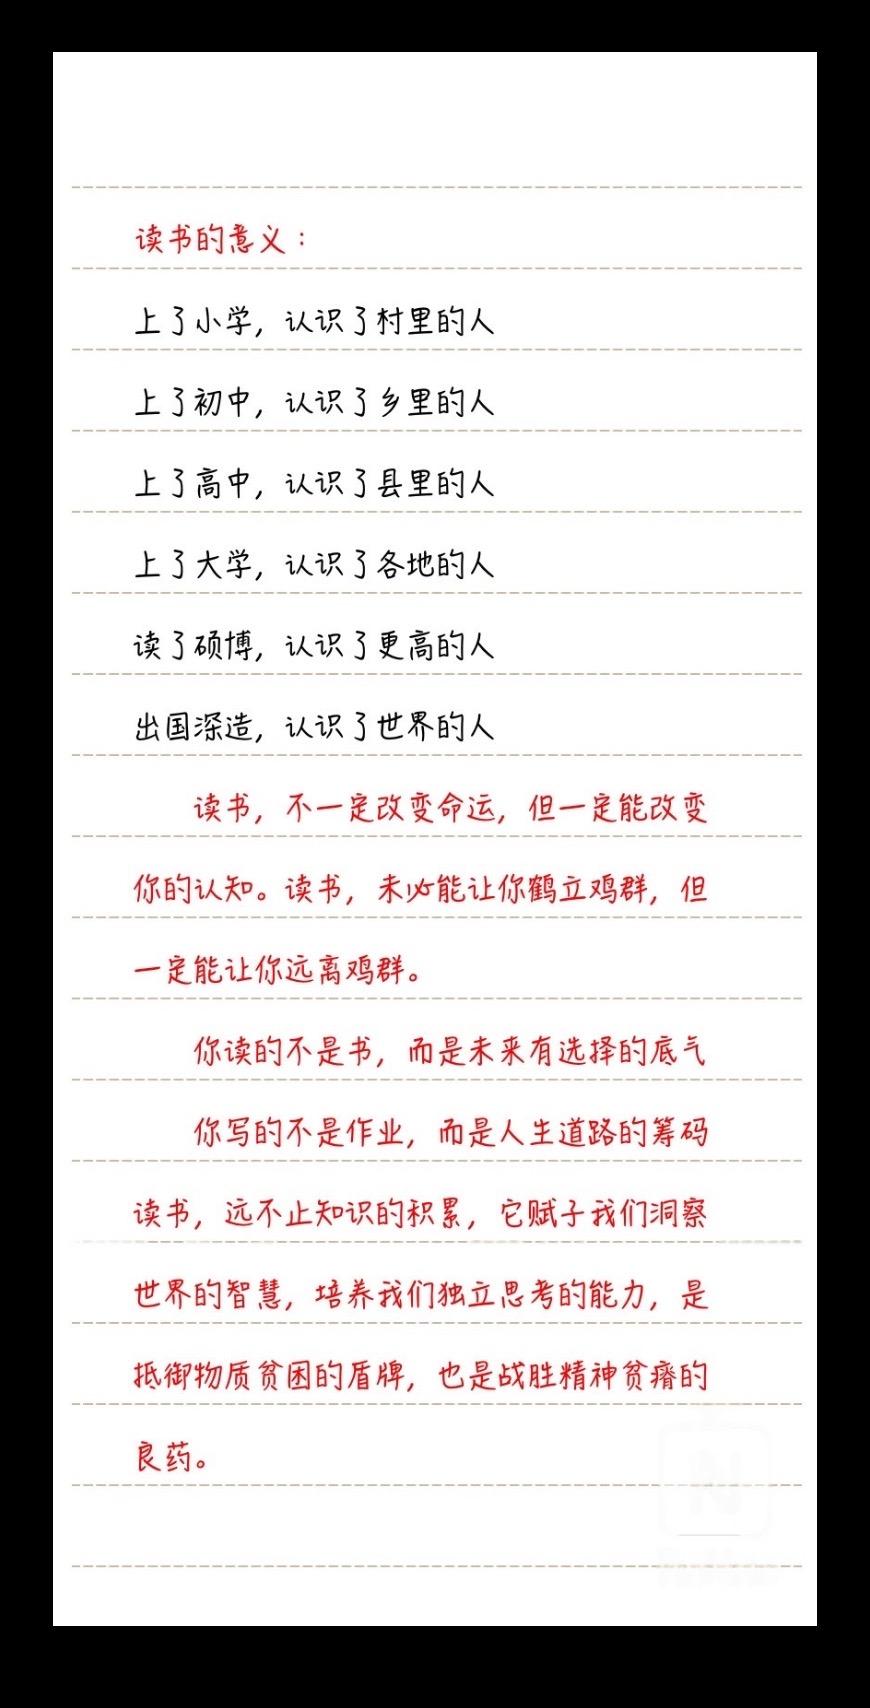 读书的意义：
上了小学，认识了村里的人
上了初中，认识了乡里的人
上了高中，认识了县里的人
上了大学，认识了各地的人
读了硕博，认识了更高的人
出国深造，认识了世界的人
读书，不一定改变命运，但一定能改变
你的认知。读书，未必能让你鹤立鸡群，但
一定能让你远离鸡群。
你读的不是书，而是未来有选择的底气
你写的不是作业，而是人生道路的筹码
读书，远不止知识的积累，它赋予我们洞察
世界的智慧，培养我们独立思考的能力，是
抵御物质贫困的盾牌，也是战胜精神贫瘠的
良药。